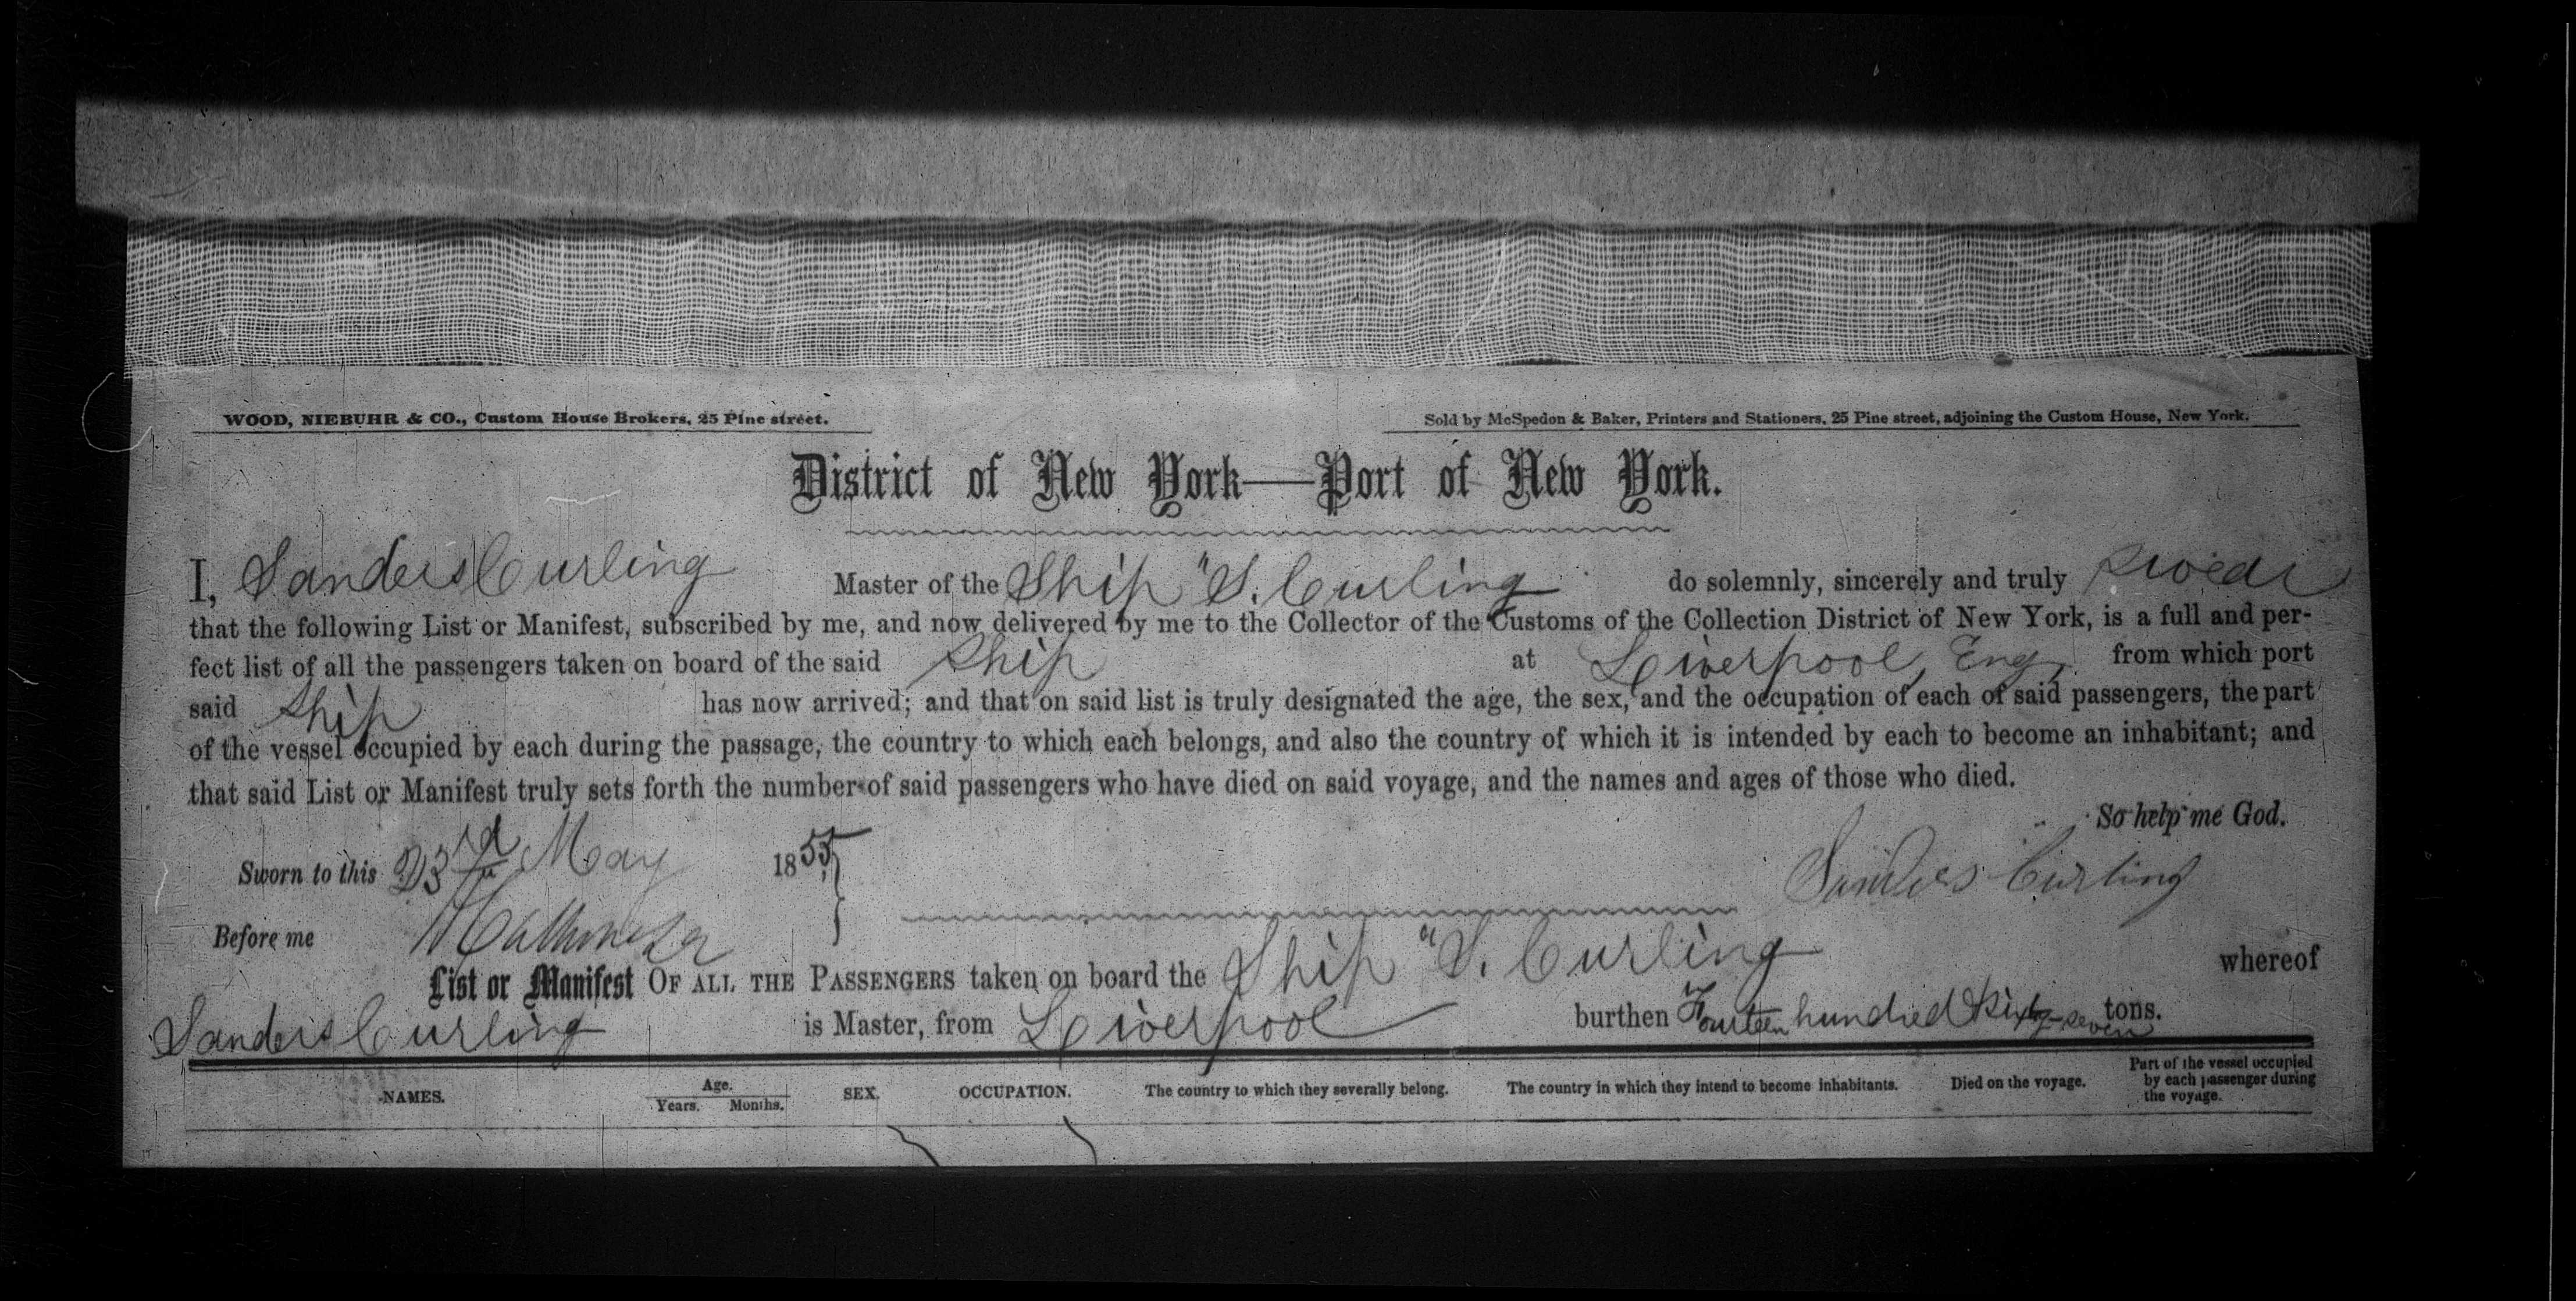 WOOD, NIEBUHR & CO., Custom House Brokers, 25 Pine street.
Sold by McSpedon & Baker, Printers and Stationers, 25 Pine street, adjoining the Custom House, New York.
District of New York—Port of New York.
I, Sanders Curling Master of the Ship "S. Curling do solemnly, sincerely and truly swear
that the following List or Manifest, subscribed by me, and now delivered by me to the Collector of the Customs of the Collection District of New York, is a full and per-
fect list of all the passengers taken on board of the said Ship at Liverpool, Eng, from which port
said Ship has now arrived; and that on said list is truly designated the age, the sex, and the occupation of each of said passengers, the part
of the vessel occupied by each during the passage, the country to which each belongs, and also the country of which it is intended by each to become an inhabitant; and
that said List or Manifest truly sets forth the number of said passengers who have died on said voyage, and the names and ages of those who died.
So help me God.
Sworn to this 23rd May 1855,
Sanders Curling
Before me
List or Manifest OF ALL THE PASSENGERS taken on board the Ship "S. Curling whereof
Sanders Curling is Master, from Liverpool burthen Fourteen hundred & Sixty-seven tons.
NAMES.
Age.
Years. Months.
SEX.
OCCUPATION.
The country to which they severally belong.
The country in which they intend to become inhabitants.
Died on the voyage.
Part of the vessel occupied
by each passenger during
the voyage.